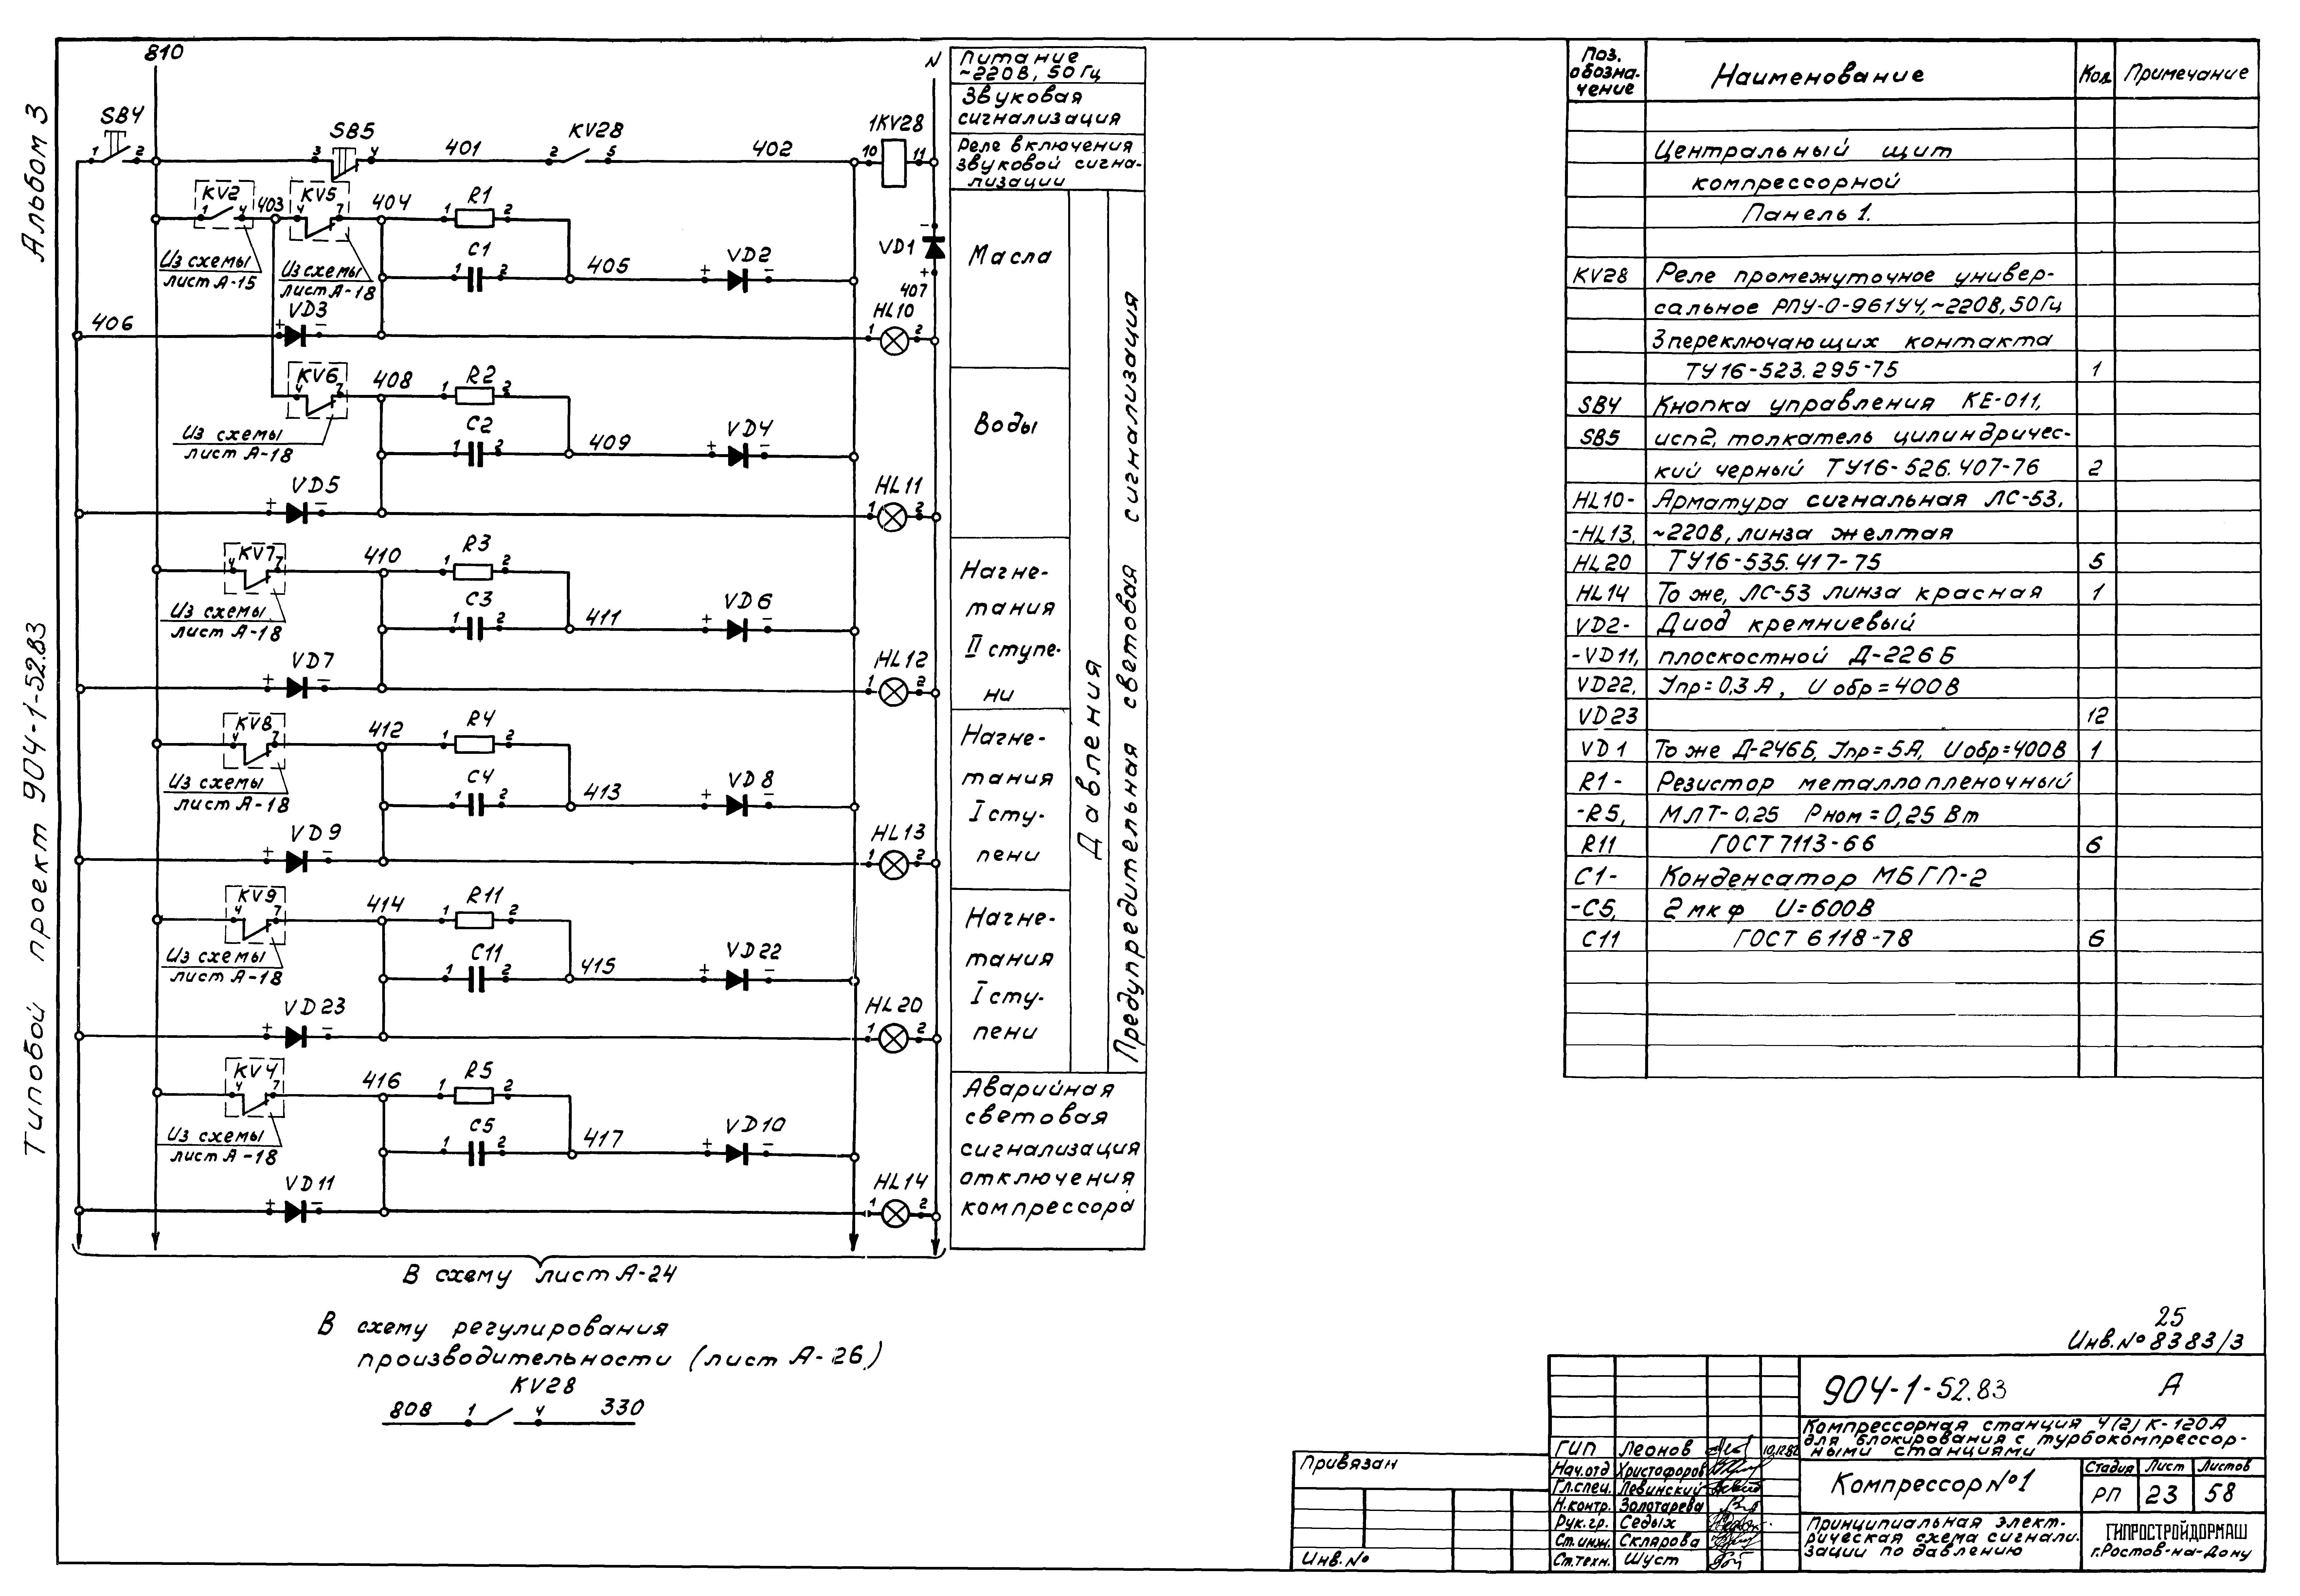 Альбом 3
Типовой проект 904-1-52.83
810
N
SB4
1 2
SB5
3 4
401
KV28
2 5
402
1KV28
10 11
KV2
1 4
403
KV5
4 7
404
R1
1 2
Из схемы
лист А-15
Из схемы
лист А-18
C1
1 2
405
VD2
+ -
VD1
-
+
407
406
VD3
+ -
HL10
1 2
KV6
4 7
408
R2
1 2
Из схемы
лист А-18
C2
1 2
409
VD4
+ -
VD5
+ -
HL11
1 2
KV7
4 7
410
R3
1 2
Из схемы
лист А-18
C3
1 2
411
VD6
+ -
VD7
+ -
HL12
1 2
KV8
4 7
412
R4
1 2
Из схемы
лист А-18
C4
1 2
413
VD8
+ -
VD9
+ -
HL13
1 2
KV9
4 7
414
R11
1 2
Из схемы
лист А-18
C11
1 2
415
VD22
+ -
VD23
+ -
HL20
1 2
KV4
4 7
416
R5
1 2
Из схемы
лист А-18
C5
1 2
417
VD10
+ -
VD11
+ -
HL14
1 2
В схему лист А-24
В схему регулирования
производительности (лист А-26)
KV28
808 1 4 330
Питание
~220В, 50Гц
Звуковая
сигнализация
Реле включения
звуковой сигна-
лизации
Масла
Воды
Нагне-
тания
II ступе-
ни
Нагне-
тания
I сту-
пени
Нагне-
тания
I сту-
пени
Давления
Предупредительная световая сигнализация
Аварийная
световая
сигнализация
отключения
компрессора
Поз. обозна-чение Наименование Кол. Примечание
Центральный щит
компрессорной
Панель 1.
KV28 Реле промежуточное универ-
сальное РПУ-0-961У4,~220В,50Гц
3переключающих контакта
ТУ16-523.295-75 1
SB4 Кнопка управления КЕ-011,
SB5 исп2, толкатель цилиндричес-
кий черный ТУ16-526.407-76 2
HL10- Арматура сигнальная ЛС-53,
-HL13, ~220В, линза желтая
HL20 ТУ16-535.417-75 5
HL14 То же, ЛС-53 линза красная 1
VD2- Диод кремниевый
-VD11, плоскостной Д-226Б
VD22, Iпр=0,3А, Uобр=400В
VD23 12
VD1 То же Д-246Б, Iпр=5А, Uобр=400В 1
R1- Резистор металлопленочный
-R5, МЛТ-0,25 Рном=0,25 Вт
R11 ГОСТ 7113-66 6
C1- Конденсатор МБГП-2
-C5, 2 мкф U=600В
C11 ГОСТ 6118-78 6
25
Инв.№ 8383/3
904-1-52.83 А
Компрессорная станция 4(2)К-120А
для блокирования с турбокомпрессор-
ными станциями
Компрессор №1
Стадия Лист Листов
РП 23 58
Принципиальная элект-
рическая схема сигнали-
зации по давлению
ГИПРОСТРОЙДОРМАШ
г.Ростов-на-Дону
ГИП Леонов 10.12.82
Нач.отд Христофоров
Гл.спец. Левинский
Н.контр. Золотарева
Рук.гр. Седых
Ст.инж. Склярова
Ст.техн. Шуст
Привязан
Инв.№